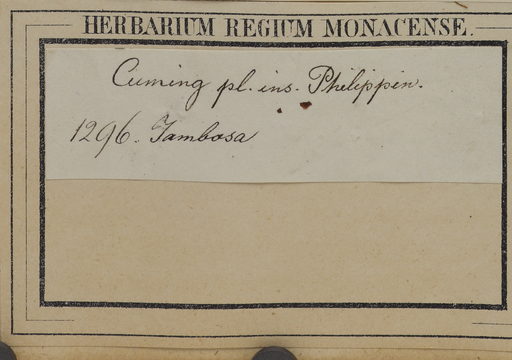 HERBARIUM REGIUM MONACENSE.
Cuming pl. ins. Philippin.
1296. Jambosa